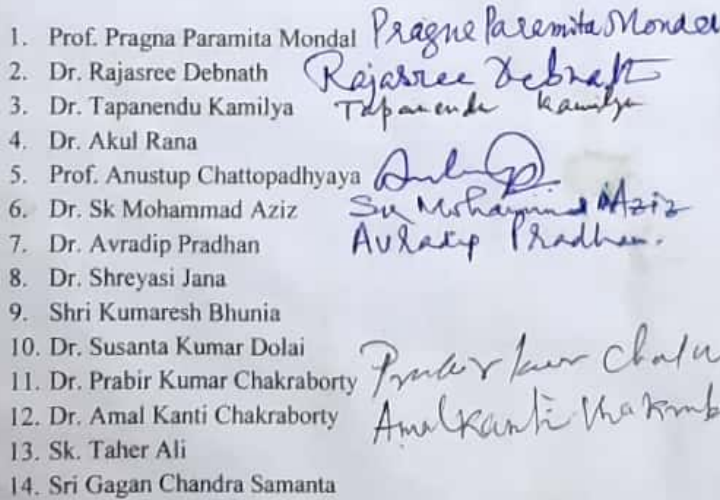 1. Prof. Pragna Paramita Mondal Pragna Paramita Mondal
2. Dr. Rajasree Debnath Rajasree Debnath
3. Dr. Tapanendu Kamilya Tapanendu Kamilya
4. Dr. Akul Rana
5. Prof. Anustup Chattopadhyaya
6. Dr. Sk Mohammad Aziz Sk Mohammad Aziz
7. Dr. Avradip Pradhan Avradip Pradhan.
8. Dr. Shreyasi Jana
9. Shri Kumaresh Bhunia
10. Dr. Susanta Kumar Dolai
11. Dr. Prabir Kumar Chakraborty Prabir
12. Dr. Amal Kanti Chakraborty Amal Kanti
13. Sk. Taher Ali
14. Sri Gagan Chandra Samanta